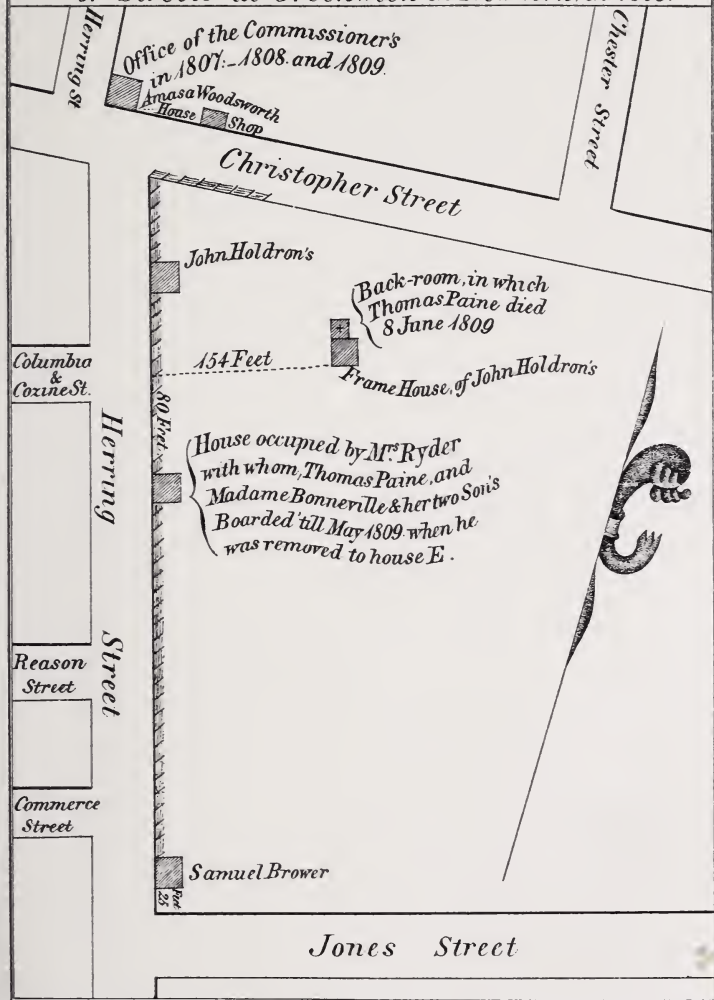 Herring St
Office of the Commissioner's
in 1807:-1808. and 1809.
Amasa Woodsworth
House
Shop
Chester Street
Christopher Street
John Holdron's
Back-room, in which
Thomas Paine died
8 June 1809
154 Feet
Frame House, of John Holdron's
Columbia
&
Cozine St.
80 Feet
Herring Street
House occupied by Mrs Ryder
with whom, Thomas Paine, and
Madame Bonneville & her two Son's
Boarded 'till May 1809. when he
was removed to house E.
Reason
Street
Commerce
Street
Samuel Brower
25 Feet
Jones Street